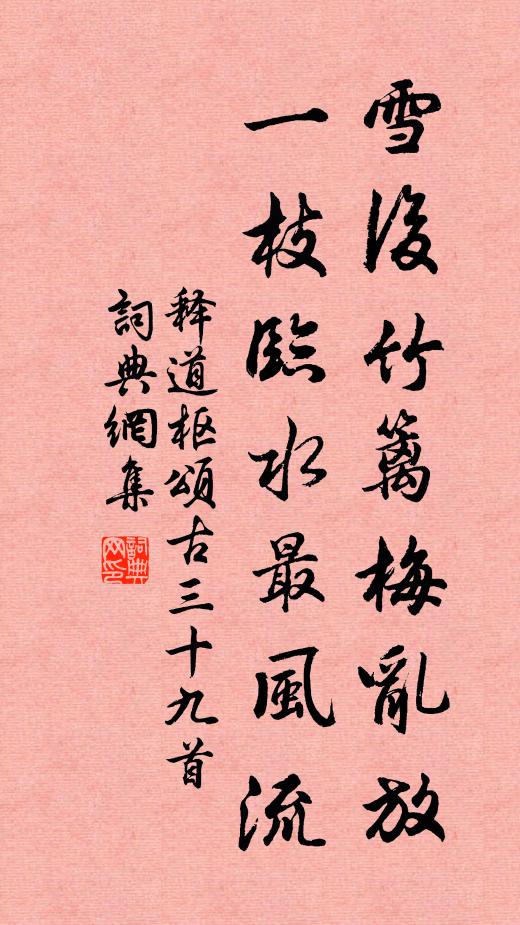 雪後竹籬梅亂放
一枝臨水最風流
释道枢頌古三十九首
詞典網集
詞典
网印